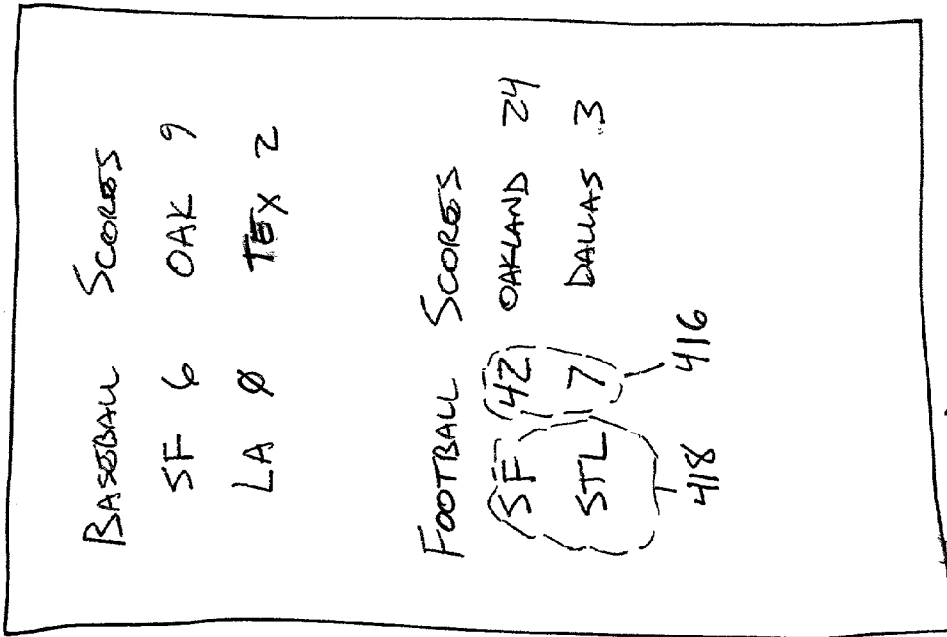 BASEBALL SCORES
SF 6 OAK 9
LA Ø TEX 2
FOOTBALL SCORES
SF 42 OAKLAND 24
STL 17 DALLAS 3
418 416